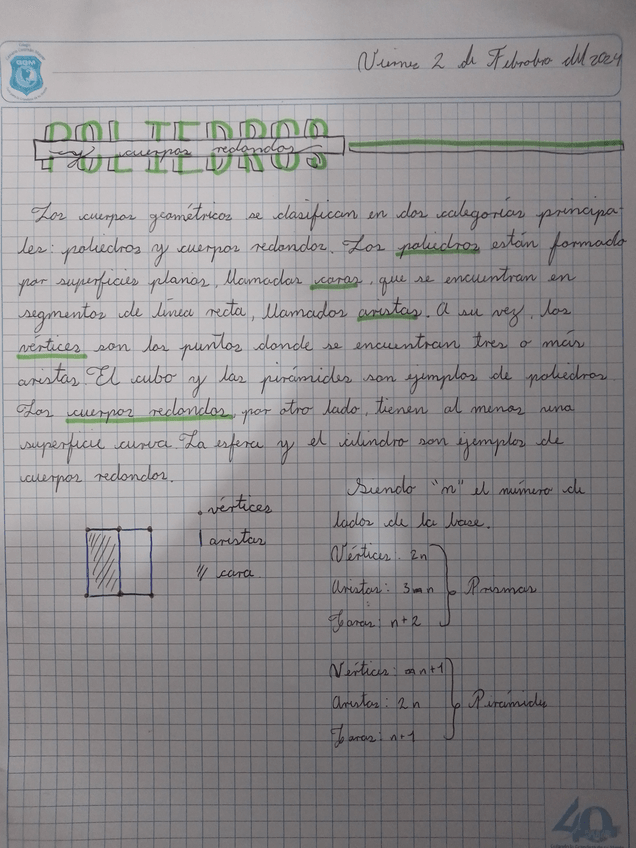 Viernes 2 de Febrero del 2024
POLIEDROS
y cuerpos redondos
Los cuerpos geométricos se clasifican en dos categorías principa-
les: poliedros y cuerpos redondos. Los poliedros están formado
por superficies planas, llamadas caras, que se encuentran en
segmentos de línea recta, llamados aristas. A su vez, los
vértices son los puntos donde se encuentran tres o más
aristas. El cubo y las pirámides son ejemplos de poliedros
Los cuerpos redondos, por otro lado, tienen al menos una
superficie curva. La esfera y el cilindro son ejemplos de
cuerpos redondos.
Siendo "n" el número de
lados de la base.
. vértices
| aristas
/// cara
Vértices: 2n
Aristas: 3n
Caras: n+2
Prismas
Vértices: n+1
Aristas: 2n
Caras: n+1
Pirámides
40